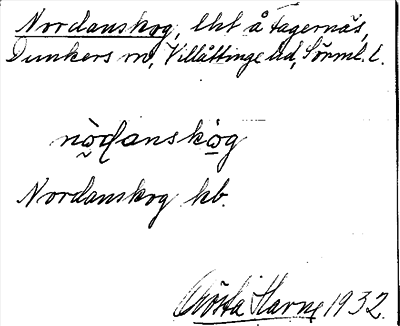 Nordanskog, lht å Fagernäs,
Dunkers sn, Villåttinge hd, Sörml. l.
nò̭ɖanskòg
Nordanskog kb.
Gösta Harne 1932.